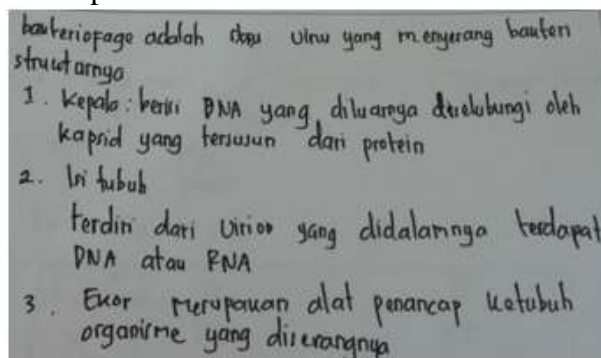 bakteriofage adalah virus yang menyerang bakteri
strukturnya
1. Kepala : berisi DNA yang diluarnya diselubungi oleh
kapsid yang tersusun dari protein
2. Isi tubuh
terdiri dari virion yang didalamnya terdapat
DNA atau RNA
3. Ekor merupakan alat penancap ketubuh
organisme yang diserangnya